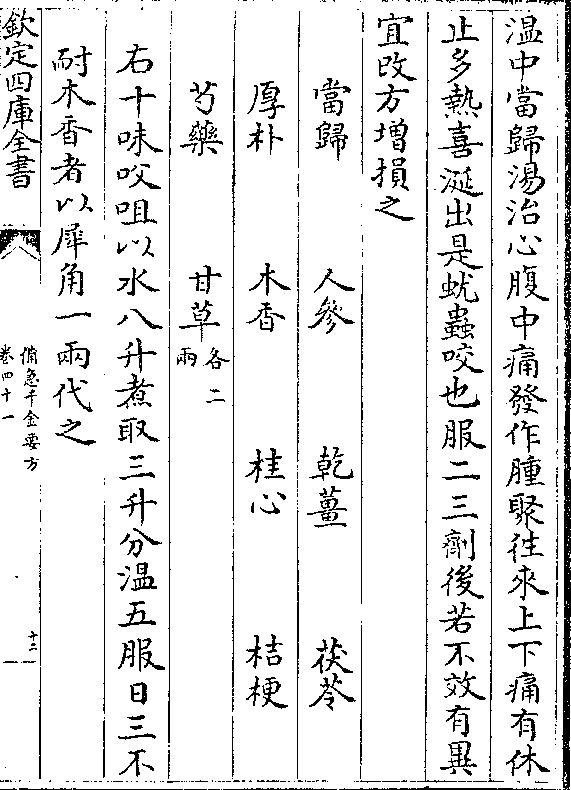 温中當歸湯治心腹中痛發作腫聚往來上下痛有休
止多熱喜涎出是蚘蟲咬也服二三劑後若不效有異
宜改方增損之
當歸 人參 乾薑 茯苓
厚朴 木香 桂心 桔梗
芍藥 甘草各二兩
右十味㕮咀以水八升煮取三升分温五服日三不
耐木香者以犀角一兩代之
欽定四庫全書
備急千金要方
卷四十一
十三